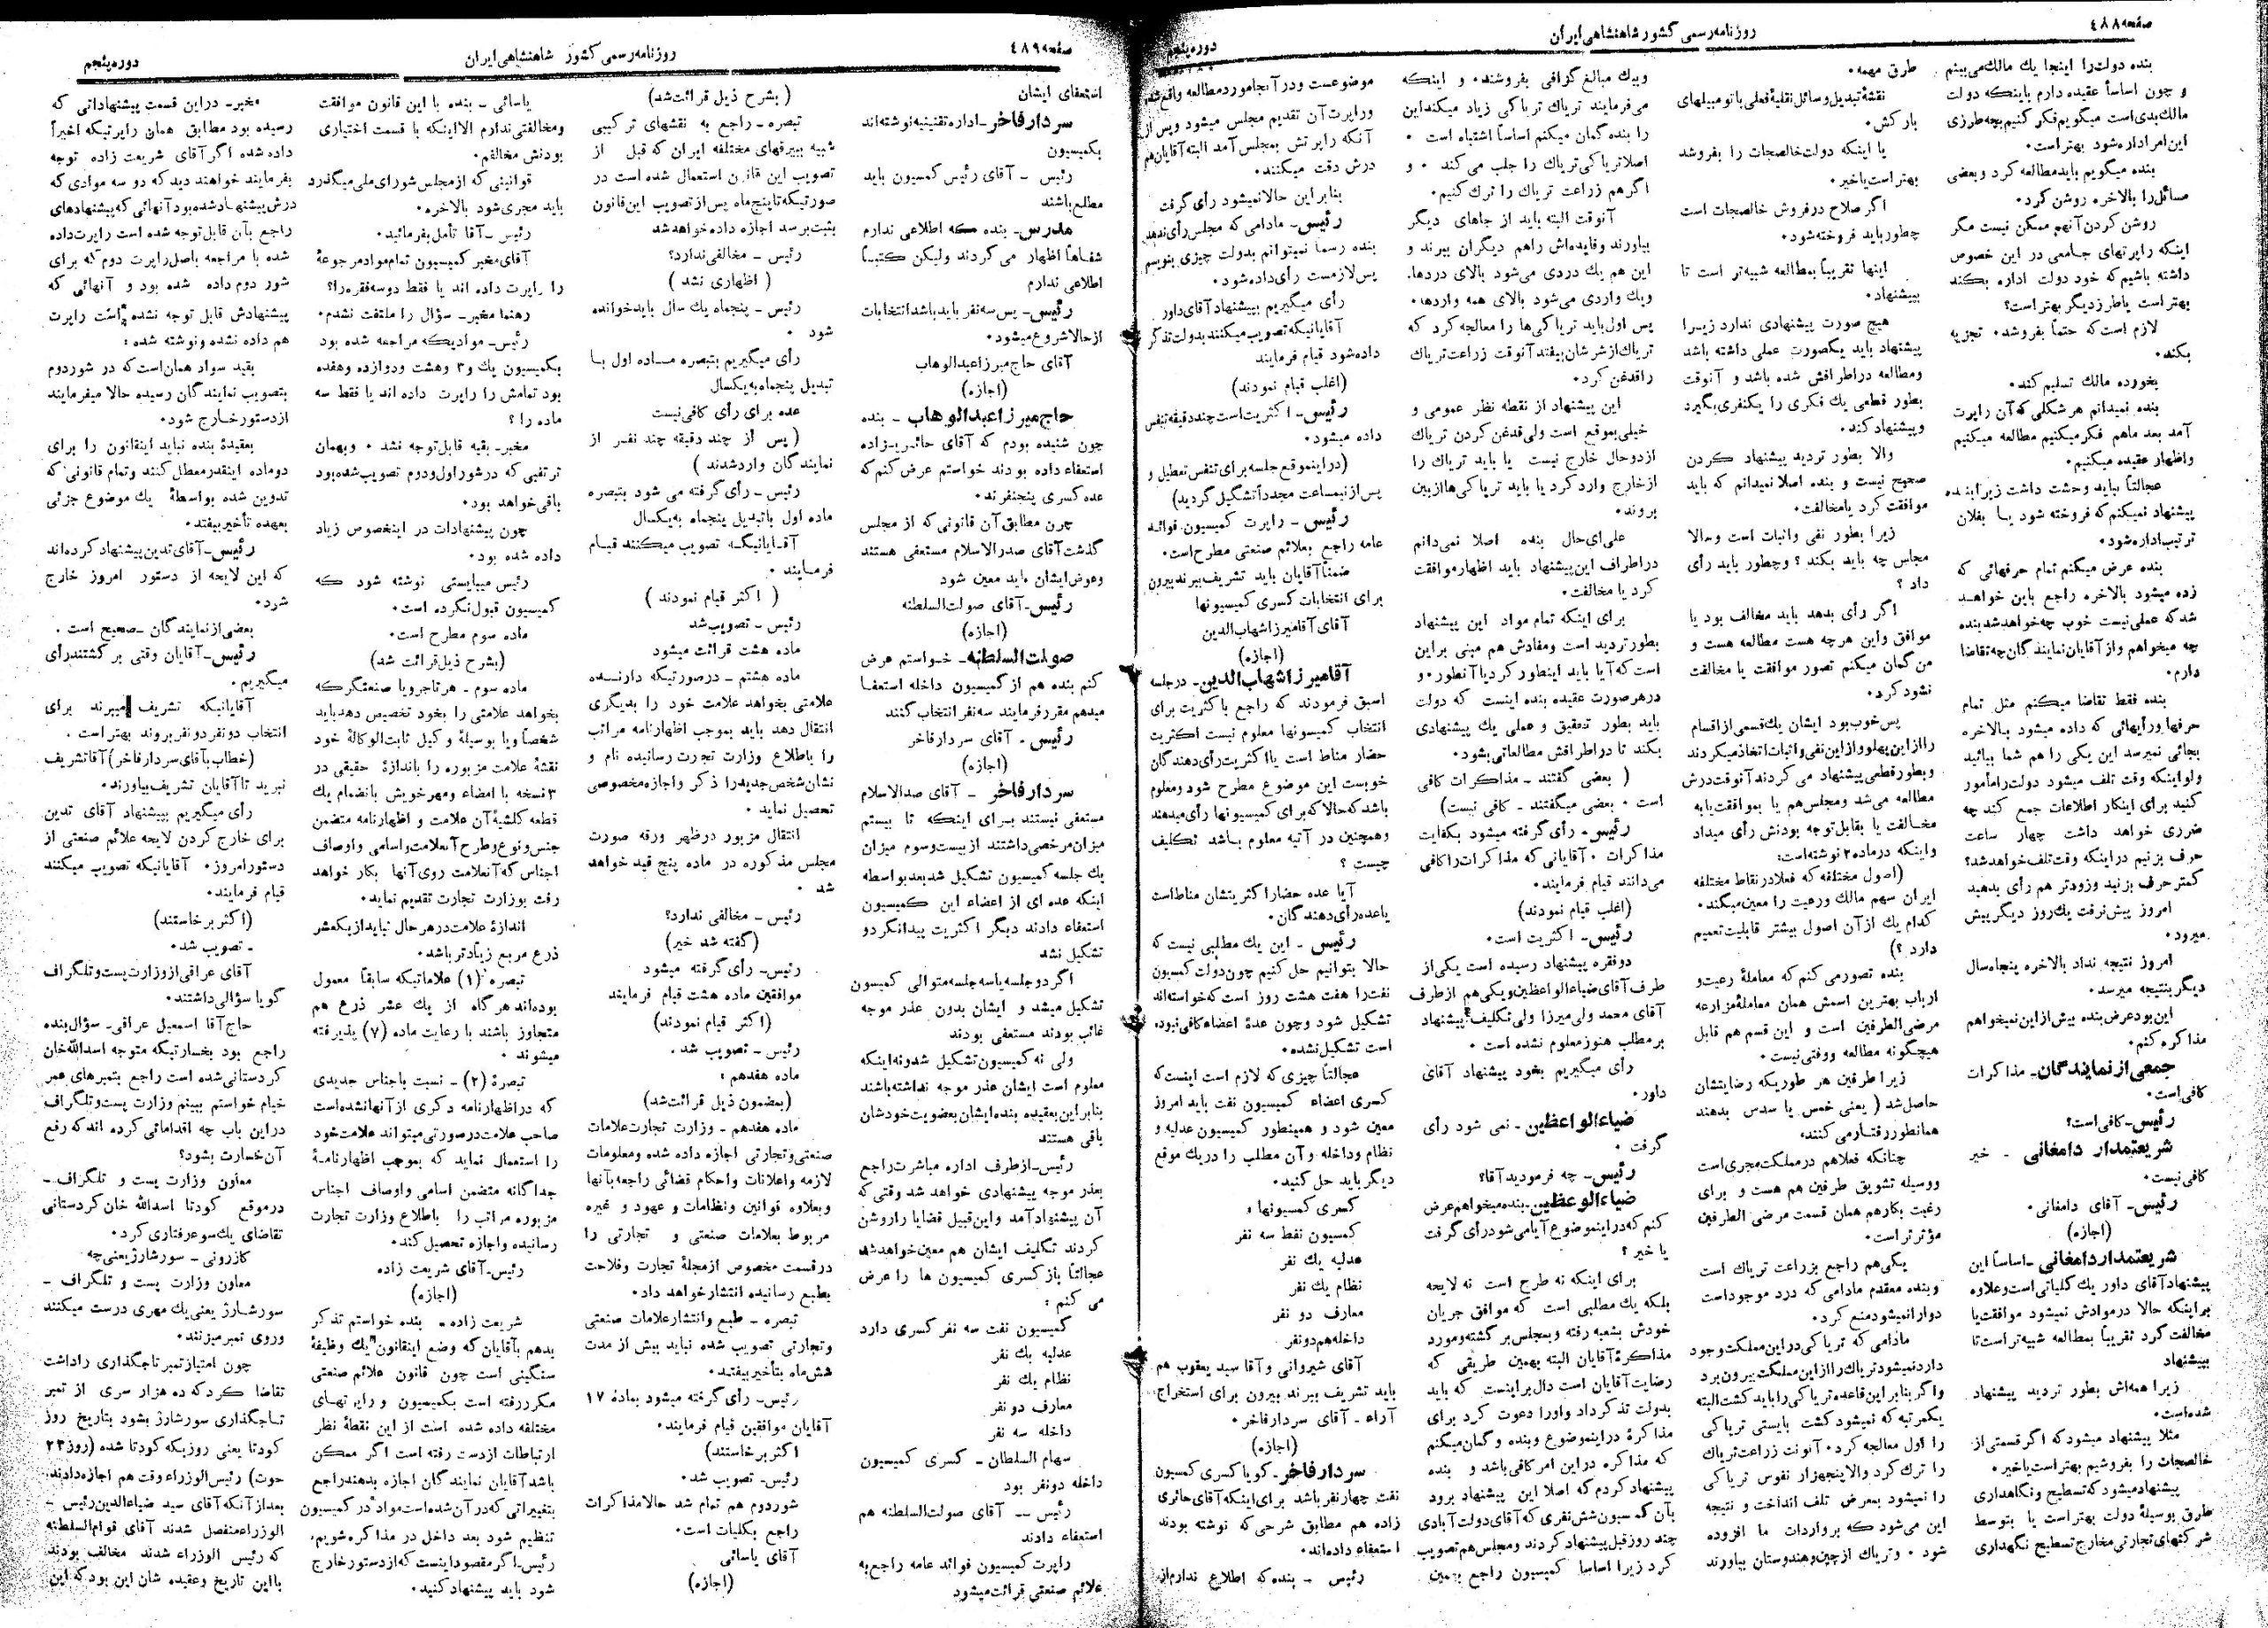 صفحه ٤٨٨
روزنامه رسمی كشور شاهنشاهی ایران
دوره پنجم
بنده دولت را اینجا یك مالك می‌بینم
و چون اساساً عقیده دارم باینكه دولت
مالك بدی است میگویم فكر كنیم بچه طرزی
این امر اداره شود بهتر است.
بنده میگویم باید مطالعه كرد و بعضی
مسائل را بالاخره روشن كرد.
روشن كردن آنهم ممكن نیست مگر
اینكه راپرتهای جامعی در این خصوص
داشته باشیم كه خود دولت اداره بكند
بهتر است یا طرز دیگر بهتر است؟
لازم است كه حتماً بفروشد. تجزیه
بكند.
بخورده مالك تسلیم كند.
بنده نمیدانم هر شكلی كه آن راپرت
آمد بعد ماهم فكر میكنیم مطالعه میكنیم
و اظهار عقیده میكنیم.
عجالتاً نباید وحشت داشت زیرا بنده
پیشنهاد نمیكنم كه فروخته شود یا بفلان
ترتیب اداره شود.
بنده عرض میكنم تمام حرفهائی كه
زده میشود بالاخره راجع باین خواهد
شد كه عملی نیست خوب چه خواهد شد بنده
چه میخواهم و از آقایان نمایندگان چه تقاضا
دارم.
بنده فقط تقاضا میكنم مثل تمام
حرفها و رأیهائی كه داده میشود بالاخره
بجائی نمیرسد این یكی را هم شما بیائید
ولو اینكه وقت تلف میشود دولت را مأمور
كنید برای اینكار اطلاعات جمع كند چه
ضرری خواهد داشت چهار ساعت
حرف بزنیم در اینكه وقت تلف خواهد شد؟
كمتر حرف بزنید و زودتر هم رأی بدهید
امروز پیش نرفت یك روز دیگر پیش
میرود.
امروز نتیجه نداد بالاخره پنجاه سال
دیگر بنتیجه میرسد.
این بود عرض بنده بیش از این نمیخواهم
مذاكره كنم.
جمعی از نمایندگان ـ مذاكرات
كافی است.
رئیس ـ كافی است؟
شریعتمدار دامغانی ـ خیر
كافی نیست.
رئیس ـ آقای دامغانی.
(اجازه)
شریعتمدار دامغانی ـ اساساً این
پیشنهاد آقای داور یك كلیاتی است و علاوه
بر اینكه حالا در موادش نمیشود موافقت یا
مخالفت كرد تقریباً بمطالعه شبیه‌تر است تا
پیشنهاد
زیرا همه‌اش بطور تردید پیشنهاد
شده است.
مثلا پیشنهاد میشود كه اگر قسمتی از
خالصجات را بفروشیم بهتر است یا خیر.
پیشنهاد میشود كه تسطیح و نگاهداری
طرق بوسیلهٔ دولت بهتر است یا بتوسط
شركتهای تجارتی مخارج تسطیح نگهداری
طرق مهمه.
نقشهٔ تبدیل وسائل نقلیهٔ فعلی با تومبیلهای
باركش.
یا اینكه دولت خالصجات را بفروشد
بهتر است یا خیر.
اگر صلاح در فروش خالصجات است
چطور باید فروخته شود.
اینها تقریباً بمطالعه شبیه‌تر است تا
پیشنهاد.
هیچ صورت پیشنهادی ندارد زیرا
پیشنهاد باید یكصورت عملی داشته باشد
و مطالعه در اطرافش شده باشد و آنوقت
بطور قطعی یك فكری را یكنفری بگیرد
و پیشنهاد كند.
والا بطور تردید پیشنهاد كردن
صحیح نیست و بنده اصلا نمیدانم كه باید
موافقت كرد یا مخالفت.
زیرا بطور نفی و اثبات است و حالا
مجلس چه باید بكند؟ و چطور باید رأی
داد؟
اگر رأی بدهد باید مخالف بود یا
موافق و این هرچه هست مطالعه هست و
من گمان میكنم تصور موافقت یا مخالفت
نشود كرد.
پس خوب بود ایشان یك قسمی از اقسام
را از این پهلو و از این نفی و اثبات اتخاذ میكردند
و بطور قطعی پیشنهاد می كردند آنوقت درش
مطالعه می‌شد و مجلس هم یا بموافقت یا به
مخالفت یا بقابل توجه بودنش رأی میداد
و اینكه در ماده ٢ نوشته است:
(اصول مختلفه كه فعلا در نقاط مختلفه
ایران سهم مالك و رعیت را معین میكند.
كدام یك از آن اصول بیشتر قابلیت تعمیم
دارد؟)
بنده تصور می كنم كه معاملهٔ رعیت و
ارباب بهترین اسمش همان معاملهٔ مزارعه
مرضی الطرفین است و این قسم هم قابل
هیچگونه مطالعه و وقتی نیست.
زیرا طرفین هر طوریكه رضایتشان
حاصل شد (یعنی خمس یا سدس بدهند
همانطور رفتار می كنند.
چنانكه فعلا هم در مملكت مجری است
و وسیله تشویق طرفین هم هست و برای
رغبت بكار هم همان قسمت مرضی الطرفین
مؤثرتر است.
یكی هم راجع بزراعت تریاك است
و بنده معتقدم مادامی كه درد موجود است
دوا را نمیشود منع كرد.
مادامی كه تریاكی در این مملكت وجود
دارد نمیشود تریاك را از این مملكت بیرون برد
و اگر بنابر این قاعده تریاكی را باید كشت البته
یكمرتبه كه نمیشود كشت بایستی تریاكی
را اول معالجه كرد. آنوقت زراعت تریاك
را ترك كرد والا پنجهزار نفوس تریاكی
را نمیشود بمعرض تلف انداخت و نتیجه
این می‌شود كه بر واردات ما افزوده
شود. و تریاك از چین و هندوستان بیاورند
و بیك مبالغ گزافی بفروشند. و اینكه
می‌فرمایند تریاك تریاكی زیاد میكند این
را بنده گمان میكنم اساساً اشتباه است.
اصلا تریاكی تریاك را جلب می كند. و
اگر هم زراعت تریاك را ترك كنیم.
آنوقت البته باید از جاهای دیگر
بیاورند و فایده‌اش را هم دیگران ببرند و
این هم یك دردی می‌شود بالای دردها.
و یك واردی می‌شود بالای همه واردها.
پس اول باید تریاكی‌ها را معالجه كرد كه
تریاك از شرشان بیفتد آنوقت زراعت تریاك
را قدغن كرد.
این پیشنهاد از نقطه نظر عمومی و
خیلی بموقع است ولی قدغن كردن تریاك
از دو حال خارج نیست یا باید تریاك را
از خارج وارد كرد یا باید تریاكی‌ها از بین
بروند.
علی‌ای‌حال بنده اصلا نمی‌دانم
در اطراف این پیشنهاد باید اظهار موافقت
كرد یا مخالفت.
برای اینكه تمام مواد این پیشنهاد
بطور تردید است و مفادش هم مبنی بر این
است كه آیا باید اینطور كرد یا آنطور. و
در هر صورت عقیده بنده اینست كه دولت
باید بطور تحقیق و عملی یك پیشنهادی
بكند تا در اطرافش مطالعاتی بشود.
(بعضی گفتند ـ مذاكرات كافی
است. بعضی میگفتند ـ كافی نیست)
رئیس ـ رأی گرفته میشود بكفایت
مذاكرات. آقایانی كه مذاكرات را كافی
می‌دانند قیام فرمایند.
(اغلب قیام نمودند)
رئیس ـ اكثریت است.
دو فقره پیشنهاد رسیده است یكی از
طرف آقای ضیاء الواعظین و یكی هم از طرف
آقای محمد ولی میرزا ولی تكلیف پیشنهاد
بر مطلب هنوز معلوم نشده است.
رأی میگیریم بخود پیشنهاد آقای
داور.
ضیاء الواعظین ـ نمی شود رأی
گرفت.
رئیس ـ چه فرمودید آقا؟
ضیاء الوعظین ـ بنده میخواهم عرض
كنم كه در اینموضوع آیا می شود رأی گرفت
یا خیر؟
برای اینكه نه طرح است نه لایحه
بلكه یك مطلبی است كه موافق جریان
خودش بشعبه رفته و بمجلس برگشته و مورد
مذاكرهٔ آقایان البته بهمین طریقی كه
رضایت آقایان است دال بر اینست كه باید
بدولت تذكر داد و اورا دعوت كرد برای
مذاكرهٔ در اینموضوع و بنده و گمان میكنم
كه مذاكره در این امر كافی باشد و بنده
پیشنهاد كردم كه اصلا این پیشنهاد برود
بآن كمسیون شش نفری كه آقای دولت آبادی
چند روز قبل پیشنهاد كردند و مجلس هم تصویب
كرد زیرا اساسا كمیسیون راجع بهمین
موضوعست و در آنجا مورد مطالعه واقع شد
و راپرت آن تقدیم مجلس میشود و پس از
آنكه راپرتش بمجلس آمد البته آقایان هم
درش دقت میكنند.
بنابر این حالا نمیشود رأی گرفت
رئیس ـ مادامی كه مجلس رأی ندهد
بنده رسماً نمیتوانم بدولت چیزی بنویسم
پس لازمست رأی داده شود.
رأی میگیریم بپیشنهاد آقای داور
آقایانیكه تصویب میكنند بدولت تذكر
داده شود قیام فرمایند
(اغلب قیام نمودند)
رئیس ـ اكثریت است چند دقیقه تنفس
داده میشود.
(در اینموقع جلسه برای تنفس تعطیل و
پس از نیمساعت مجدداً تشكیل گردید)
رئیس ـ راپرت كمیسیون فوائد
عامه راجع بعلائم صنعتی مطرح است.
ضمناً آقایان باید تشریف ببرند بیرون
برای انتخابات كسری كمیسیونها
آقای آقا میرزا شهاب الدین
(اجازه)
آقا میرزا شهاب الدین ـ در جلسه
اسبق فرمودند كه راجع با كثریت برای
انتخاب كمیسونها معلوم نیست اكثریت
حضار مناط است یا اكثریت رأی دهندگان
خوبست این موضوع مطرح شود و معلوم
باشد كه حالا كه برای كمیسیونها رأی میدهند
و همچنین در آتیه معلوم باشد تكلیف
چیست؟
آیا عده حضار اكثریتشان مناط است
یا عده رأی دهندگان.
رئیس ـ این یك مطلبی نیست كه
حالا بتوانیم حل كنیم چون دولت كمسیون
نفت را هفت هشت روز است كه خواسته‌اند
تشكیل شود و چون عدهٔ اعضاء كافی نبوده
است تشكیل نشده.
عجالتاً چیزی كه لازم است اینست كه
كسری اعضاء كمیسیون نفت باید امروز
معین شود و همینطور كمیسیون عدلیه و
نظام و داخله و آن مطلب را در یك موقع
دیگر باید حل كنید.
كسری كمسیونها و
كمسیون نفط سه نفر
عدلیه یك نفر
نظام یك نفر
معارف دو نفر
داخله هم دو نفر
آقای شیروانی و آقا سید یعقوب هم
باید تشریف ببرند بیرون برای استخراج
آراء ـ آقای سردار فاخر.
(اجازه)
سردار فاخر ـ گویا كسری كمسیون
نفت چهار نفر باشد برای اینكه آقای حائری
زاده هم مطابق شرحی كه نوشته بودند
استعفاء داده‌اند.
رئیس ـ بنده كه اطلاع ندارم از
صفحه ٤٨٩
روزنامه رسمی كشور شاهنشاهی ایران
دوره پنجم
استعفای ایشان
سردار فاخر ـ اداره تقنینیه نوشته‌اند
بكمیسیون
رئیس ـ آقای رئیس كمسیون باید
مطلع باشند
مدرس ـ بنده كه اطلاعی ندارم
شفاهاً اظهار می كردند ولیكن كتباً
اطلاعی ندارم
رئیس ـ پس سه نفر باید باشد انتخابات
از حالا شروع میشود.
آقای حاج میرزا عبدالوهاب
(اجازه)
حاج میرزا عبدالوهاب ـ بنده
چون شنیده بودم كه آقای حائری‌زاده
استعفاء داده بودند خواستم عرض كنم كه
عده كسری پنجنفرند.
چون مطابق آن قانونی كه از مجلس
گذشت آقای صدر الاسلام مستعفی هستند
و عوض ایشان باید معین شود
رئیس ـ آقای صولت السلطنه
(اجازه)
صولت السلطنه ـ خواستم عرض
كنم بنده هم از كمیسیون داخله استعفا
میدهم مقرر فرمایند سه نفر انتخاب كنند
رئیس ـ آقای سردار فاخر
(اجازه)
سردار فاخر ـ آقای صدالاسلام
مستعفی نیستند برای اینكه تا بیستم
میزان مرخصی داشتند از بیست و سوم میزان
یك جلسه كمیسیون تشكیل شد بعد بواسطه
اینكه عده ای از اعضاء این كمیسیون
استعفاء دادند دیگر اكثریت پیدا نكرد و
تشكیل نشد
اگر دو جلسه یا سه جلسه متوالی كمیسون
تشكیل میشد و ایشان بدون عذر موجه
غائب بودند مستعفی بودند
ولی نه كمیسیون تشكیل شد و نه اینكه
معلوم است ایشان عذر موجه نداشته باشند
بنابر این بعقیده بنده ایشان بعضویت خودشان
باقی هستند
رئیس ـ از طرف اداره مباشرت راجع
بعذر موجه پیشنهادی خواهد شد وقتی كه
آن پیشنهاد آمد و این قبیل قضایا را روشن
كردند تكلیف ایشان هم معین خواهد شد
عجالتاً باز كسری كمیسیون ها را عرض
می كنم:
كمیسیون نفت سه نفر كسری دارد
عدلیه یك نفر
نظام یك نفر
معارف دو نفر
داخله سه نفر
سهام السلطان ـ كسری كمیسیون
داخله دو نفر بود
رئیس ـ آقای صولت السلطنه هم
استعفاء دادند
راپرت كمیسیون فوائد عامه راجع به
علائم صنعتی قرائت میشود
(بشرح ذیل قرائت شد)
تبصره ـ راجع به نقشهای تركیبی
شبیه ببیرقهای مختلفه ایران كه قبل از
تصویب این قانون استعمال شده است در
صورتیكه تا پنج ماه پس از تصویب این قانون
بثبت برسد اجازه داده خواهد شد
رئیس ـ مخالفی ندارد؟
(اظهاری نشد)
رئیس ـ پنجماه یك سال باید خوانده
شود.
رأی میگیریم بتبصره ماده اول با
تبدیل پنجماه به یكسال
عده برای رأی كافی نیست
(پس از چند دقیقه چند نفر از
نمایندگان وارد شدند)
رئیس ـ رأی گرفته می شود بتبصره
ماده اول با تبدیل پنجماه به یكسال
آقایانیكه تصویب میكنند قیام
فرمایند.
(اكثر قیام نمودند)
رئیس ـ تصویب شد
ماده هشت قرائت میشود
ماده هشتم ـ در صورتیكه دارنده
علامتی بخواهد علامت خود را بدیگری
انتقال دهد باید بموجب اظهارنامه مراتب
را باطلاع وزارت تجرت رسانیده نام و
نشان شخص جدید را ذكر و اجازه مخصوصی
تحصیل نماید.
انتقال مزبور در ظهر ورقه صورت
مجلس مذكوره در ماده پنج قید خواهد
شد.
رئیس ـ مخالفی ندارد؟
(گفته شد خیر)
رئیس ـ رأی گرفته میشود
موافقین ماده هشت قیام فرمایند
(اكثر قیام نمودند)
رئیس ـ تصویب شد.
ماده هفدهم:
(بمضمون ذیل قرائت شد)
ماده هفدهم ـ وزارت تجارت علامات
صنعتی و تجارتی اجازه داده شده و معلومات
لازمه و اعلانات و احكام قضائی راجعه بآنها
و بعلاوه قوانین و نظامات و عهود و غیره
مربوط بعلامات صنعتی و تجارتی را
در قسمت مخصوص از مجلهٔ تجارت و فلاحت
بطبع رسانیده انتشار خواهد داد.
تبصره ـ طبع و انتشار علامات صنعتی
و تجارتی تصویب شده نباید بیش از مدت
شش ماه بتأخیر بیفتد.
رئیس ـ رأی گرفته میشود بمادهٔ ١٧
آقایان موافقین قیام فرمایند.
اكثر برخاستند)
رئیس ـ تصویب شد.
شور دوم هم تمام شد حالا مذاكرات
راجع بكلیات است.
آقای یاسائی
(اجازه)
یاسائی ـ بنده با این قانون موافقت
و مخالفتی ندارم الا اینكه با قسمت اختیاری
بودنش مخالفم.
قوانینی كه از مجلس شورای ملی میگذرد
باید مجری شود بالاخره.
رئیس ـ آقا تأمل بفرمائید.
آقای مخبر كمیسیون تمام مواد مرجوعهٔ
را راپرت داده اند یا فقط دو سه فقره را؟
رهنما مخبر ـ سؤال را ملتفت نشدم.
رئیس ـ موادیكه مراجعه شده بود
بكمیسیون یك و ٣ و هشت و دوازده و هفده
بود تمامش را راپرت داده اند یا فقط سه
ماده را؟
مخبر ـ بقیه قابل توجه نشد. و بهمان
ترتیبی كه در شور اول و دوم تصویب شده بود
باقی خواهد بود.
چون پیشنهادات در اینخصوص زیاد
داده شده بود.
رئیس میبایستی نوشته شود كه
كمیسیون قبول نكرده است.
ماده سوم مطرح است.
(بشرح ذیل قرائت شد)
ماده سوم ـ هر تاجر و یا صنعتگر كه
بخواهد علامتی را بخود تخصیص دهد باید
شخصاً و یا بوسیلهٔ وكیل ثابت الوكالهٔ خود
نقشهٔ علامت مزبوره را باندازهٔ حقیقی در
٣ نسخه با امضاء و مهر خویش بانضمام یك
قطعه كلشیهٔ آن علامت و اظهارنامه متضمن
جنس و نوع و طرح آنعلامت و اسامی و اوصاف
اجناس كه آنعلامت روی آنها بكار خواهد
رفت بوزارت تجارت تقدیم نماید.
اندازهٔ علامت در هر حال نباید از یكعشر
ذرع مربع زیادتر باشد.
تبصره (١) علاماتیكه سابقاً معمول
بوده‌اند هر گاه از یك عشر ذرع هم
متجاوز باشند با رعایت ماده (٧) پذیرفته
میشوند.
تبصرهٔ (٢) ـ نسبت باجناس جدیدی
كه در اظهارنامه ذكری از آنها نشده است
صاحب علامت در صورتی میتواند علامت خود
را استعمال نماید كه بموجب اظهارنامهٔ
جداگانه متضمن اسامی و اوصاف اجناس
مزبوره مراتب را باطلاع وزارت تجارت
رسانیده و اجازه تحصیل كند.
رئیس ـ آقای شریعت زاده
(اجازه)
شریعت زاده ـ بنده خواستم تذكر
بدهم بآقایان كه وضع اینقانون یك وظیفهٔ
سنگینی است چون قانون علائم صنعتی
مكرر رفته است بكمیسیون و راپرتهای
مختلفه داده شده است از این نقطهٔ نظر
ارتباطات از دست رفته است اگر ممكن
باشد آقایان نمایندگان اجازه بدهند راجع
بتغییراتی كه در آن شده است مواد در كمیسیون
تنظیم شود بعد داخل در مذاكره شویم.
رئیس ـ اگر مقصود اینست كه از دستور خارج
شود باید پیشنهاد كنید.
مخبر ـ در این قسمت پیشنهاداتی كه
رسیده بود مطابق همان راپرتیكه اخیراً
داده شده اگر آقای شریعت زاده توجه
بفرمایند خواهند دید كه دو سه موادی كه
درش پیشنهاد شده بود آنهائی كه پیشنهادهای
راجع بآن قابل توجه شده است راپرت داده
شده با مراجعه باصل راپرت دوم كه برای
شور دوم داده شده بود و آنهائی كه
پیشنهادش قابل توجه نشده است راپرت
هم داده نشده و نوشته شده:
بقید سواد همان است كه در شور دوم
بتصویب نمایندگان رسیده حالا میفرمایند
از دستور خارج شود.
بعقیدهٔ بنده نباید اینقانون را برای
دو ماده اینقدر معطل كنند و تمام قانونی كه
تدوین شده بواسطهٔ یك موضوع جزئی
بعهده تأخیر بیفتد.
رئیس ـ آقای تدین پیشنهاد كرده‌اند
كه این لایحه از دستور امروز خارج
شود.
بعضی از نمایندگان ـ صحیح است.
رئیس ـ آقایان وقتی برگشتند رأی
میگیریم.
آقایانیكه تشریف میبرند برای
انتخاب دو نفر دو نفر بروند بهتر است.
(خطاب بآقای سردار فاخر) آقا تشریف
نبرید تا آقایان تشریف بیاورند.
رأی میگیریم بپیشنهاد آقای تدین
برای خارج كردن لایحه علائم صنعتی از
دستور امروز. آقایانیكه تصویب میكنند
قیام فرمایند.
(اكثر برخاستند)
ـ تصویب شد.
آقای عراقی از وزارت پست و تلگراف
گویا سؤالی داشتند.
حاج آقا اسمعیل عراقی ـ سؤال بنده
راجع بود بخسارتیكه متوجه اسدالله خان
كردستانی شده است راجع بتمبرهای عمر
خیام خواستم ببینم وزارت پست و تلگراف
در این باب چه اقداماتی كرده اند كه رفع
آن خسارت بشود؟
معاون وزارت پست و تلگراف ـ
در موقع كودتا اسدالله خان كردستانی
تقاضای یك سوءرفتاری كرد.
كازرونی ـ سورشارژ یعنی چه
معاون وزارت پست و تلگراف ـ
سورشارژ یعنی یك مهری درست میكنند
و روی تمبر میزنند.
چون امتیاز تمبر تاجگذاری را داشت
تقاضا كرد كه ده هزار سری از تمبر
تاجگذاری سورشارژ بشود بتاریخ روز
كودتا یعنی روزیكه كودتا شده (روز ٢٣
حوت) رئیس الوزراء وقت هم اجازه دادند.
بعد از آنكه آقای سید ضیاءالدین رئیس ـ
الوزراء منفصل شدند آقای قوام السلطنه
كه رئیس الوزراء شدند مخالف بودند
با این تاریخ و عقیده شان این بود كه این